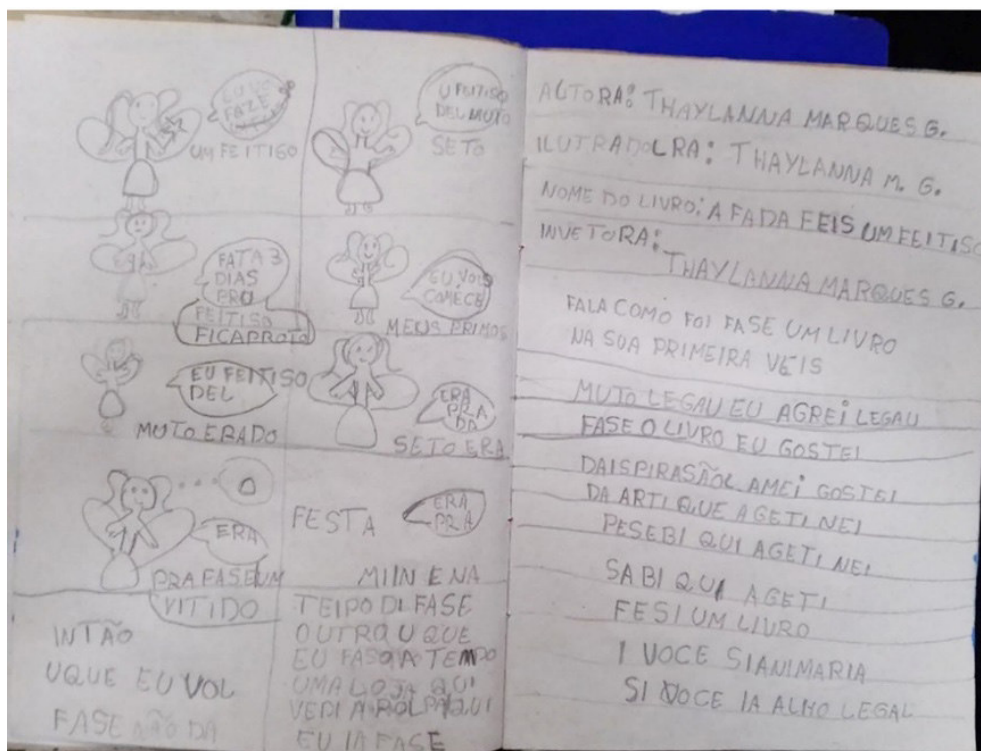 EU VO
FAZE
UM FEITIÇO
U FEITISO
DEL MUTO
SETO
FATA 3
DIAS
PRU
FEITISO
FICAPROTO
EU VOL
COMECE
MEUS PRIMOS
EU FEITISO
DEL
MUTO ERADO
ERA
PRA
DA
SETO ERA
ERA
PRA FASEUM
VITIDO
FESTA
ERA
PRA
MIINENA
INTÃO
UQUE EU VOL
FASE NÃO DA
TEIPO DI FASE
OUTRO U QUE
EU FASO A TEMPO
UMA LOJA QUI
VEDI A ROLPA QUI
EU IA FASE
AUTORA: THAYLANNA MARQUES G.
ILUTRADOLRA: THAYLANNA M. G.
NOME DO LIVRO: A FADA FEIS UM FEITISO
INVETORA:
THAYLANNA MARQUES G.
FALA COMO FOI FASE UM LIVRO
NA SUA PRIMEIRA VEIS
MUTO LEGAU EU AGREI LEGAU
FASE O LIVRO EU GOSTEI
DAISPIRASÃOL AMEI GOSTEI
DA ARTI QUE AGETI NEI
PESEBI QUI AGETI NEI
SABI QUI AGETI
FESI UM LIVRO
I VOCE SIANIMARIA
SI VOCE IA ALHO LEGAL